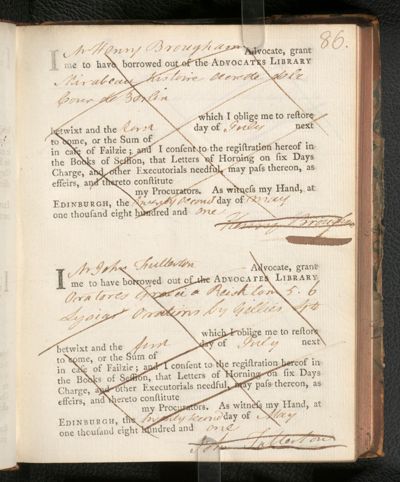 86.
I Mr Henry Brougham Advocate, grant
me to have borrowed out of the ADVOCATES LIBRARY
Mirabeau Histoire de la
Cour de Berlin
which I oblige me to restore
betwixt and the first day of July next
to come, or the Sum of
in case of Failzie; and I consent to the registration hereof in
the Books of Session, that Letters of Horning on six Days
Charge, and other Executorials needful, may pass thereon, as
effeirs, and thereto constitute
my Procurators. As witness my Hand, at
EDINBURGH, the twenty second day of May
one thousand eight hundred and one
Henry Brougham
I Mr John Fullerton Advocate, grant
me to have borrowed out of the ADVOCATES LIBRARY
Oratores Graeci a Reiske tom 5. 6
Lysias's Orations by Gillies 4to
which I oblige me to restore
betwixt and the first day of July next
to come, or the Sum of
in case of Failzie; and I consent to the registration hereof in
the Books of Session, that Letters of Horning on six Days
Charge, and other Executorials needful, may pass thereon, as
effeirs, and thereto constitute
my Procurators. As witness my Hand, at
EDINBURGH, the twenty second day of May
one thousand eight hundred and one
John Fullerton